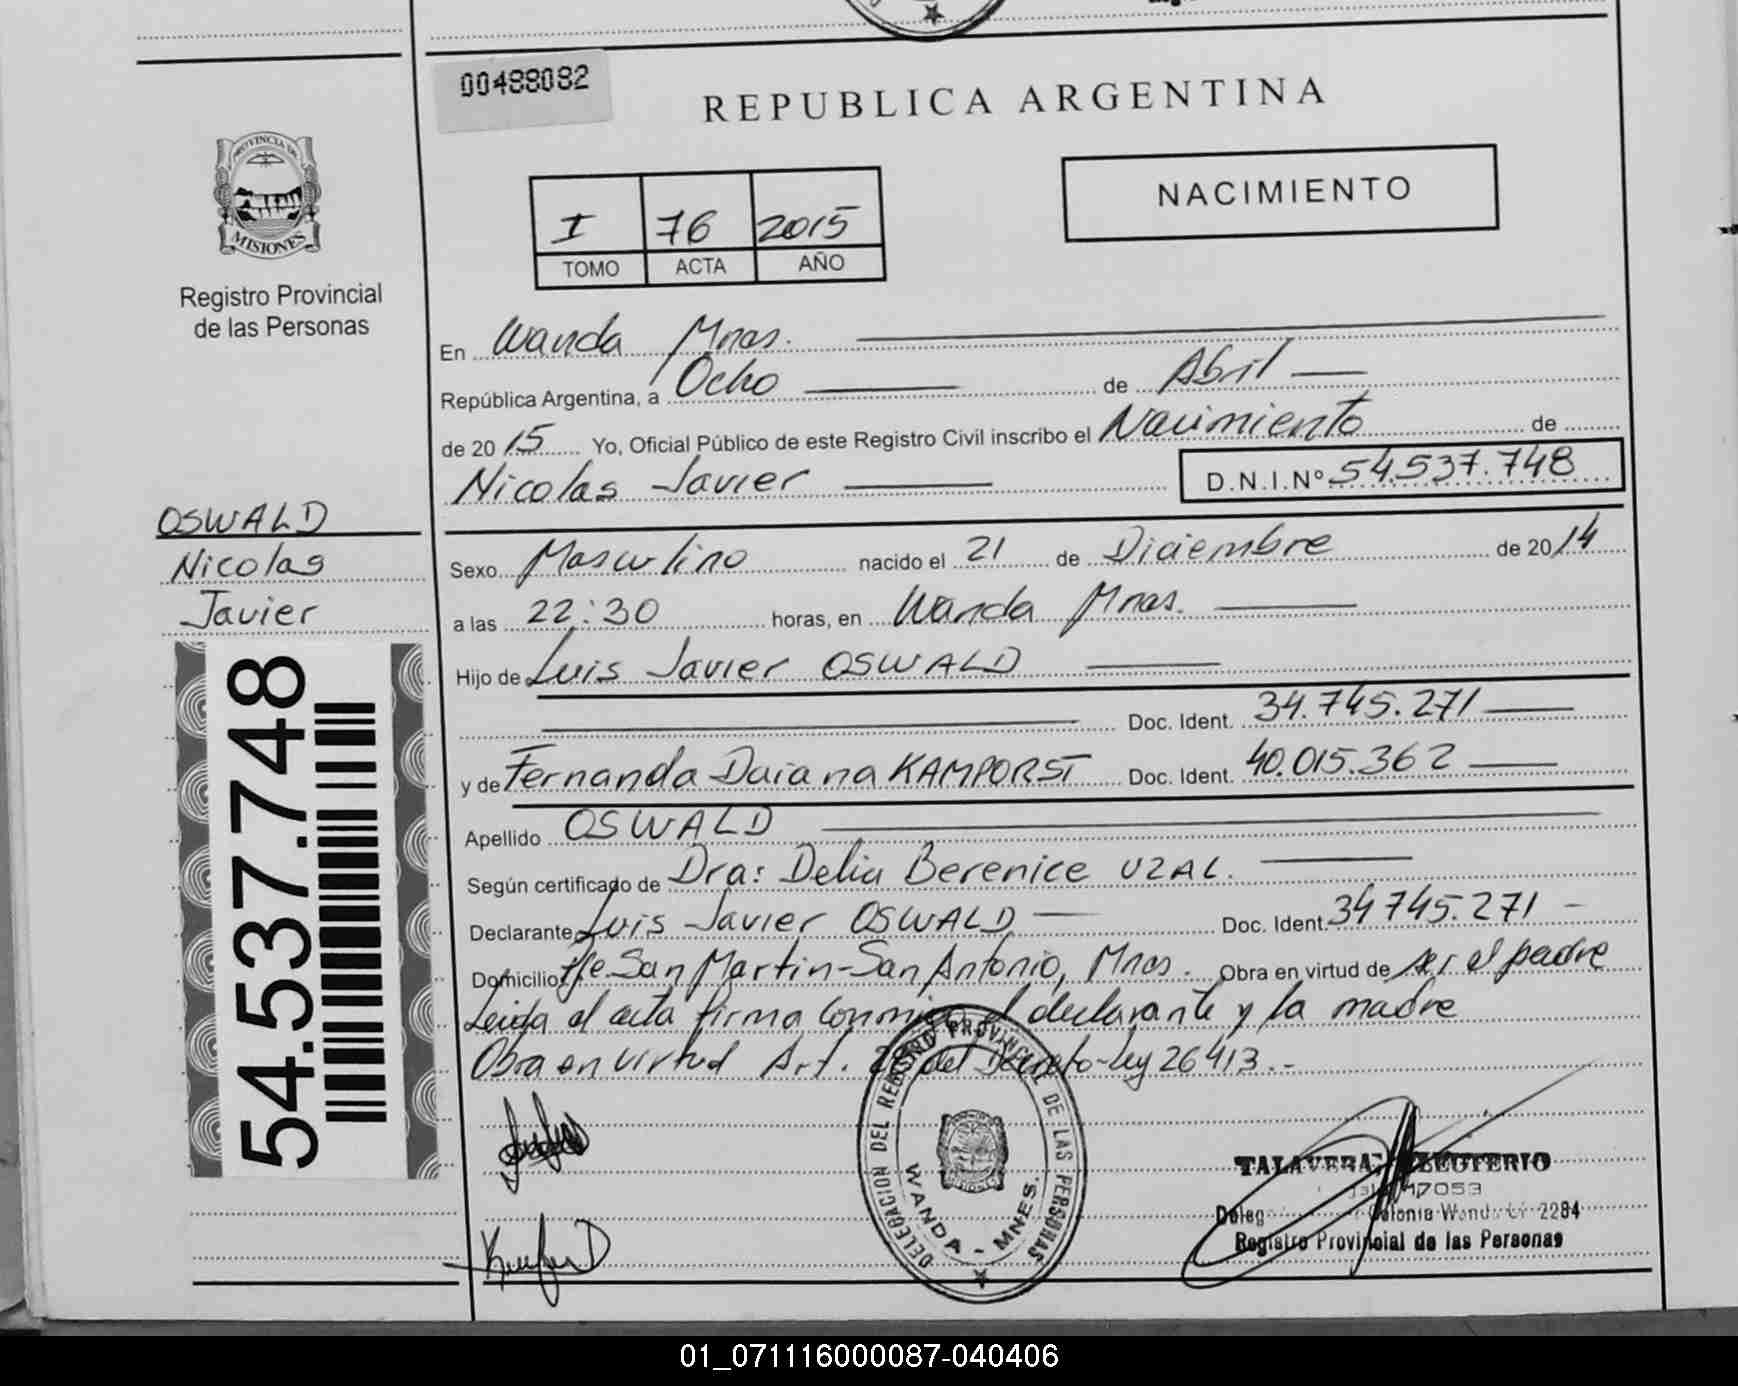 00488082
REPUBLICA ARGENTINA
NACIMIENTO
I 76 2015
TOMO ACTA AÑO
PROVINCIA DE
MISIONES
Registro Provincial
de las Personas
En Wanda Mnes.
República Argentina, a Ocho de Abril
de 2015 Yo, Oficial Público de este Registro Civil inscribo el Nacimiento de
Nicolas Javier D.N.I.Nº 54.537.748
OSWALD
Nicolas
Javier
54.537.748
Sexo Masculino nacido el 21 de Diciembre de 2014
a las 22:30 horas, en Wanda Mnes.
Hijo de Luis Javier OSWALD
Doc. Ident. 34.745.271
y de Fernanda Daiana KAMPORST Doc. Ident. 40.015.362
Apellido OSWALD
Según certificado de Dra: Delia Berenice UZAL.
Declarante Luis Javier OSWALD Doc. Ident. 34745.271
Domicilio San Martin-San Antonio, Mnes. Obra en virtud de ser el padre
Leida el acta firma conmigo el declarante y la madre
Obra en virtud Art. del Decreto-ley 26413.-
DELEGACION DEL REGISTRO PROVINCIAL DE LAS PERSONAS
WANDA - MNES.
TALAVERA ELEUTERIO
Colonia Wanda 2284
Registro Provincial de las Personas
01_071116000087-040406